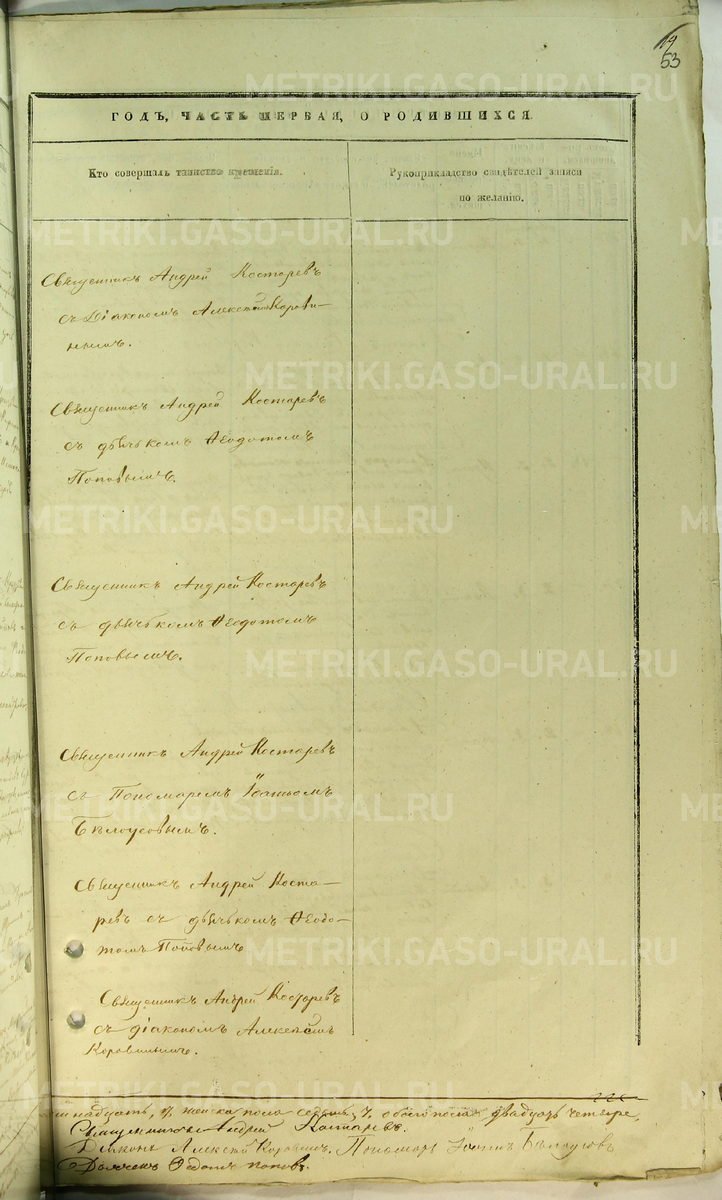 19
53
METRIKI.GASO-URAL.RU
ГОДЪ, ЧАСТЬ ПЕРВАЯ, О РОДИВШИХСЯ.
Кто совершалъ таинство крещенія.
Рукоприкладство свидѣтелей записи
по желанію.
Священникъ Андрей Костаревъ
съ Діакономъ Алексѣемъ Корови-
нымъ.
Священникъ Андрей Костаревъ
съ дьячкомъ Ѳеодотомъ
Поповымъ.
Священникъ Андрей Костаревъ
съ дьячкомъ Ѳеодотомъ
Поповымъ.
Священникъ Андрей Костаревъ
съ Пономаремъ Іоанномъ
Бѣлоусовымъ.
Священникъ Андрей Коста-
ревъ съ дьячкомъ Ѳеодо-
томъ Поповымъ
Священникъ Андрей Костаревъ
съ діакономъ Алексѣемъ
Коровинымъ.
надцать, женска пола седмь, обоего пола двадцать четыре.
Священникъ Андрей Костаревъ.
Діаконъ Алексѣй Коровинъ. Пономарь Іоаннъ Бѣлоусовъ
Дьячекъ Ѳедотъ Поповъ.